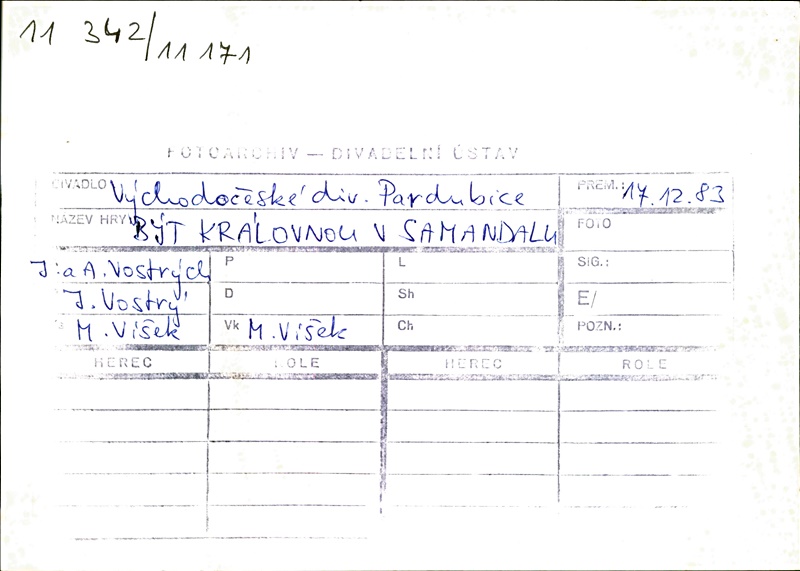 11 342/11 171
FOTOARCHIV — DIVADELNÍ ÚSTAV
DIVADLO Východočeské div. Pardubice PREM.: 17.12.83
NÁZEV HRY BÝT KRÁLOVNOU V SAMANDALU FOTO
J. a A. Vostrých P L SIG.:
J. Vostrý D Sh E/
M. Víšek Vk M. Víšek Ch POZN.:
HEREC ROLE HEREC ROLE